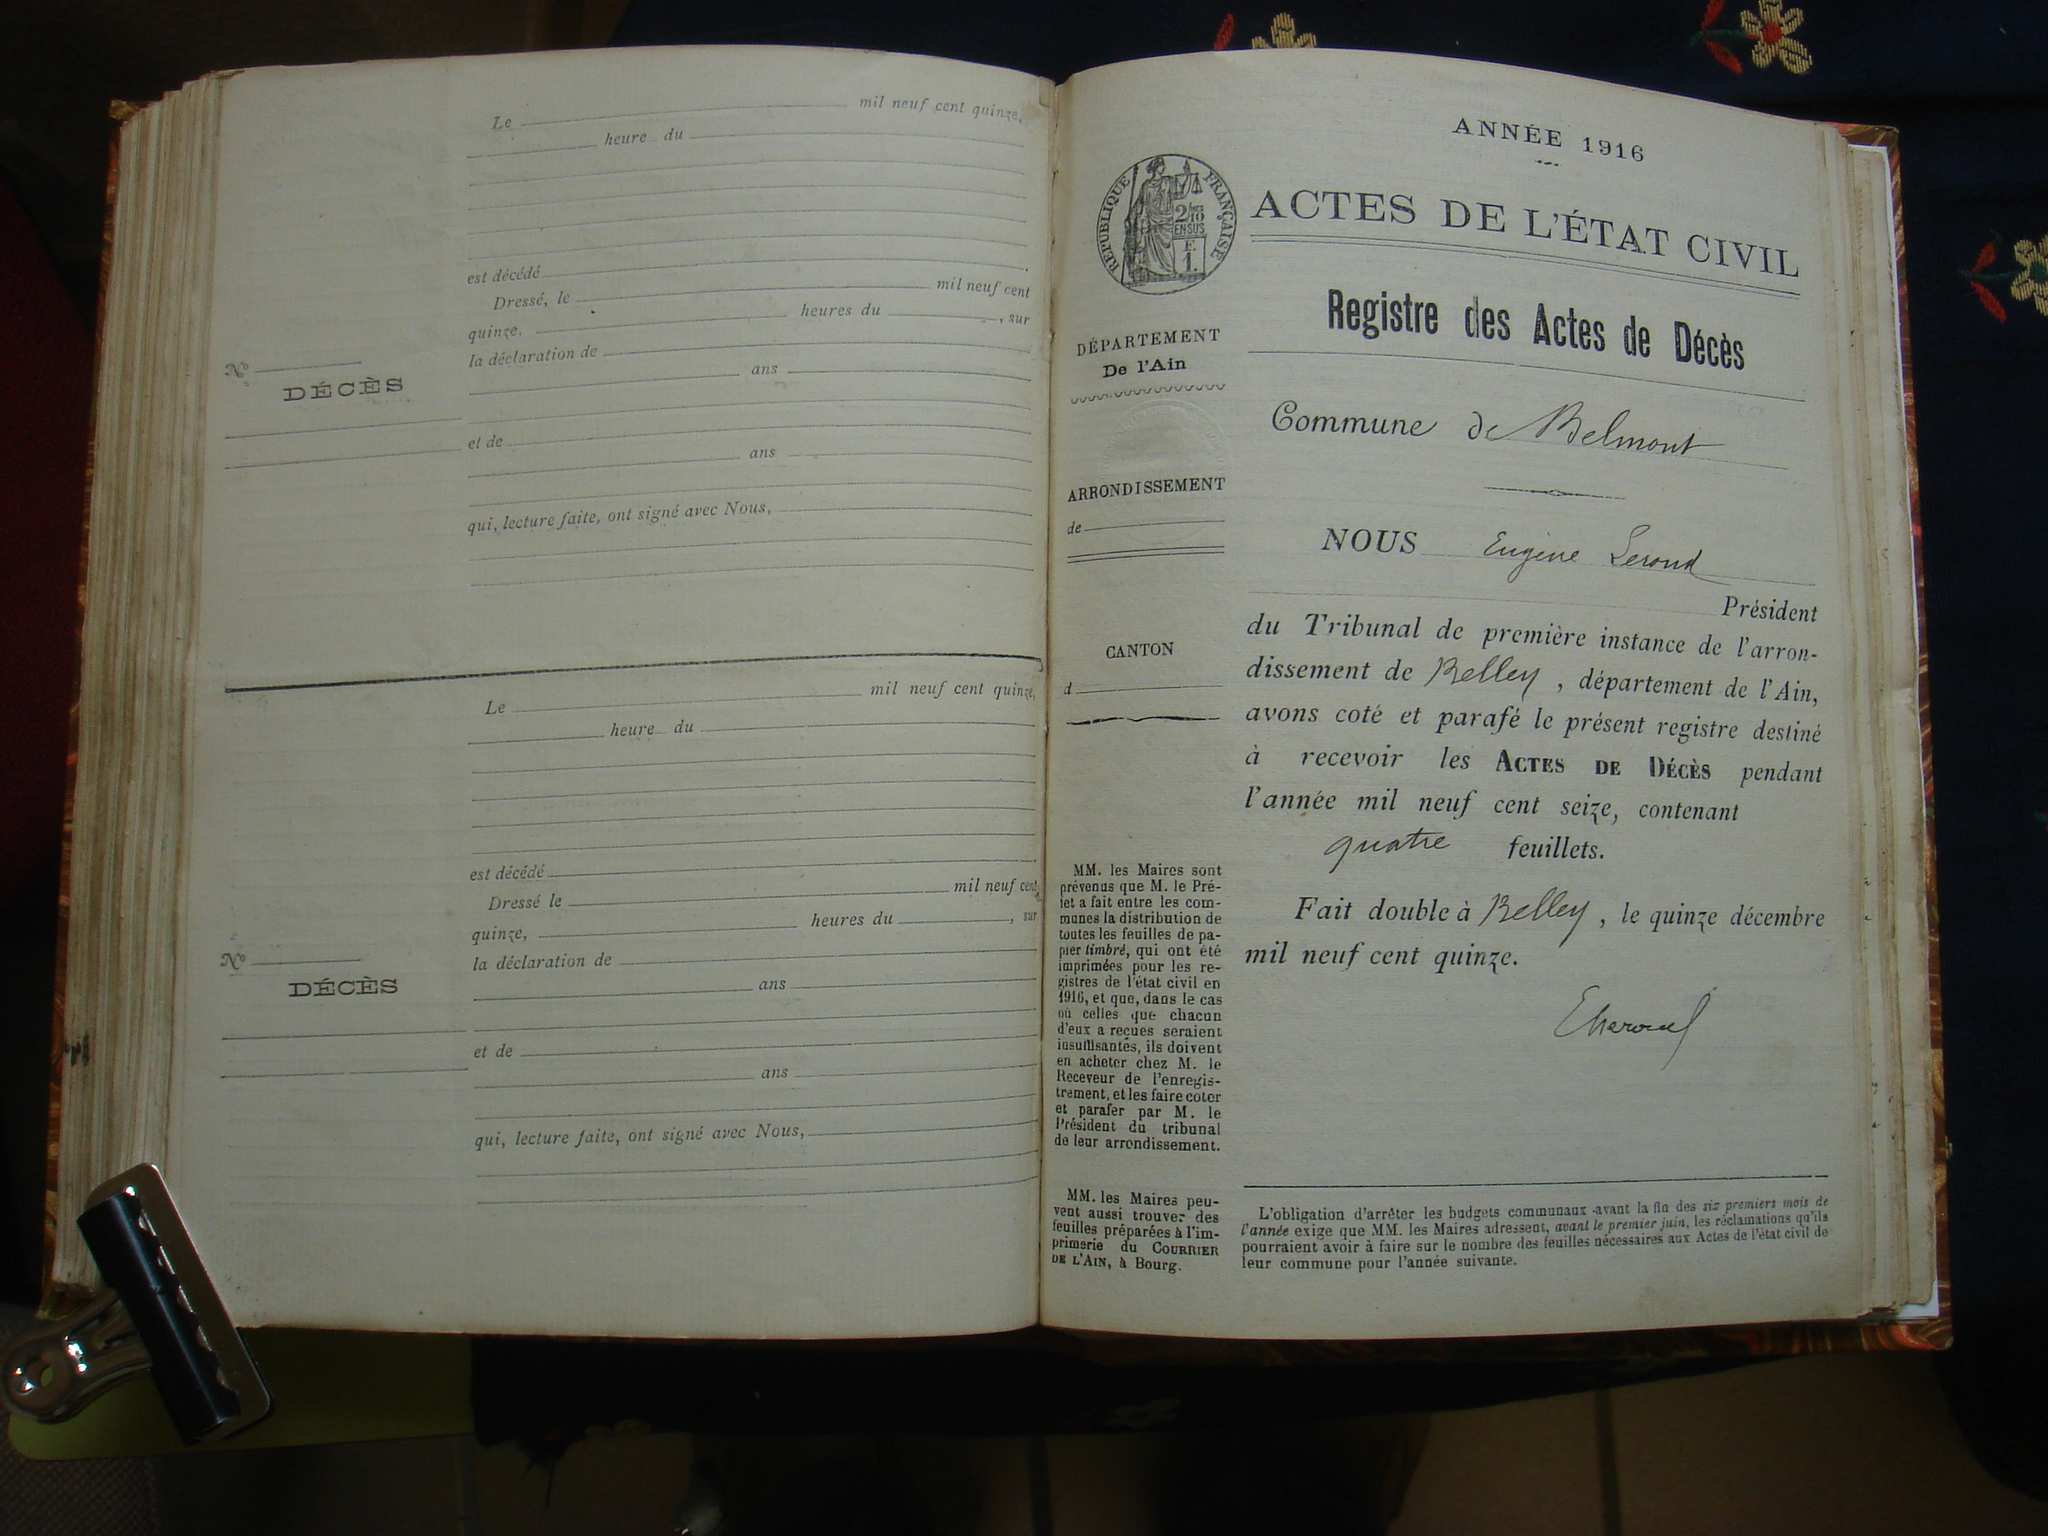 Le mil neuf cent quinze,
heure du
est décédé
Dressé, le mil neuf cent
quinze, heures du , sur
la déclaration de
ans
No
DÉCÈS
et de
ans
qui, lecture faite, ont signé avec Nous,
Le mil neuf cent quinze,
heure du
est décédé
Dressé le mil neuf cent
quinze, heures du , sur
la déclaration de
ans
No
DÉCÈS
et de
ans
qui, lecture faite, ont signé avec Nous,
RÉPUBLIQUE FRANÇAISE
2/10
EN SUS
F.
1.
DÉPARTEMENT
De l'Ain
ARRONDISSEMENT
de
CANTON
d
MM. les Maires sont
prévenus que M. le Pré-
fet a fait entre les com-
munes la distribution de
toutes les feuilles de pa-
pier timbré, qui ont été
imprimées pour les re-
gistres de l'état civil en
1916, et que, dans le cas
où celles que chacun
d'eux a reçues seraient
insuffisantes, ils doivent
en acheter chez M. le
Receveur de l'enregis-
trement, et les faire coter
et parafer par M. le
Président du tribunal
de leur arrondissement.
MM. les Maires peu-
vent aussi trouver des
feuilles préparées à l'im-
primerie du COURRIER
DE L'AIN, à Bourg.
ANNÉE 1916
ACTES DE L'ÉTAT CIVIL
Registre des Actes de Décès
Commune de Belmont
NOUS Eugène
Président
du Tribunal de première instance de l'arron-
dissement de Belley, département de l'Ain,
avons coté et parafé le présent registre destiné
à recevoir les ACTES DE DÉCÈS pendant
l'année mil neuf cent seize, contenant
quatre feuillets.
Fait double à Belley, le quinze décembre
mil neuf cent quinze.
L'obligation d'arrêter les budgets communaux avant la fin des six premiers mois de
l'année exige que MM. les Maires adressent, avant le premier juin, les réclamations qu'ils
pourraient avoir à faire sur le nombre des feuilles nécessaires aux Actes de l'état civil de
leur commune pour l'année suivante.